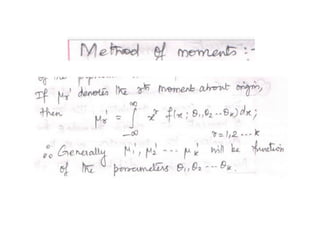 Method of moments :-
of the
If μr' denotes the rth moment about origin,
then μr' = ∫_{-∞}^{∞} x^r f(x; θ1, θ2 ... θk) dx;
r = 1,2 ... k
∴ Generally μ1', μ2' --- μk' will be function
of the parameters θ1, θ2 ... θk.